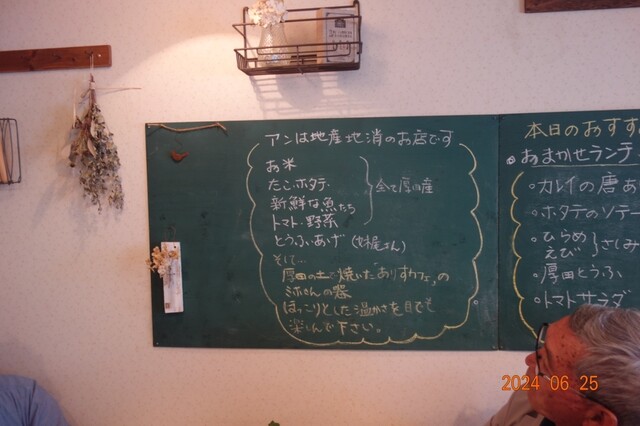 アンは地産地消のお店です
お米
たこ・ホタテ・
新鮮な魚たち
トマト・野菜
全て厚田産
とうふあげ
そして…
厚田の土で焼いた「ありすカフェ」の
さんの器
ほっこりとした温かさを目でも
楽しんで下さい。
本日のおすす
おまかせランチ
・カレイの唐あ
・ホタテのソテー
・ひらめ
えび
さしみ
・厚田とうふ
・トマトサラダ
2024 06 25